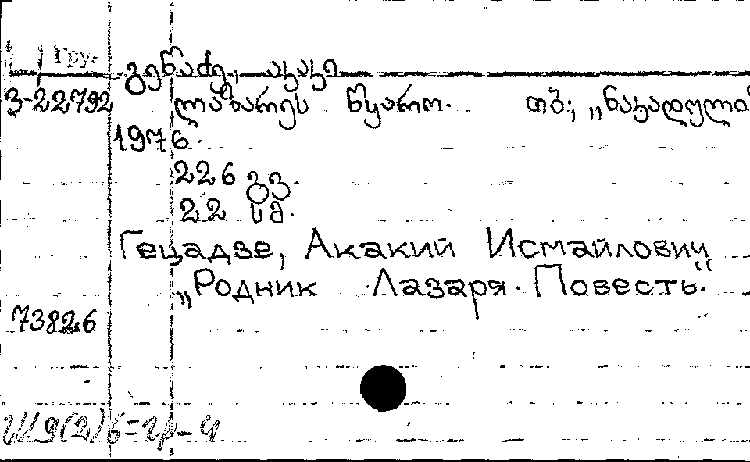 Груз.
გეწაძე, აკაკი
3-22792 ლაზარეს წყარო. თბ., „ნაკადული
1976.
226 გვ.
22 სმ.
Гецадзе, Акакий Исмайлович
„Родник Лазаря. Повесть.“
73826